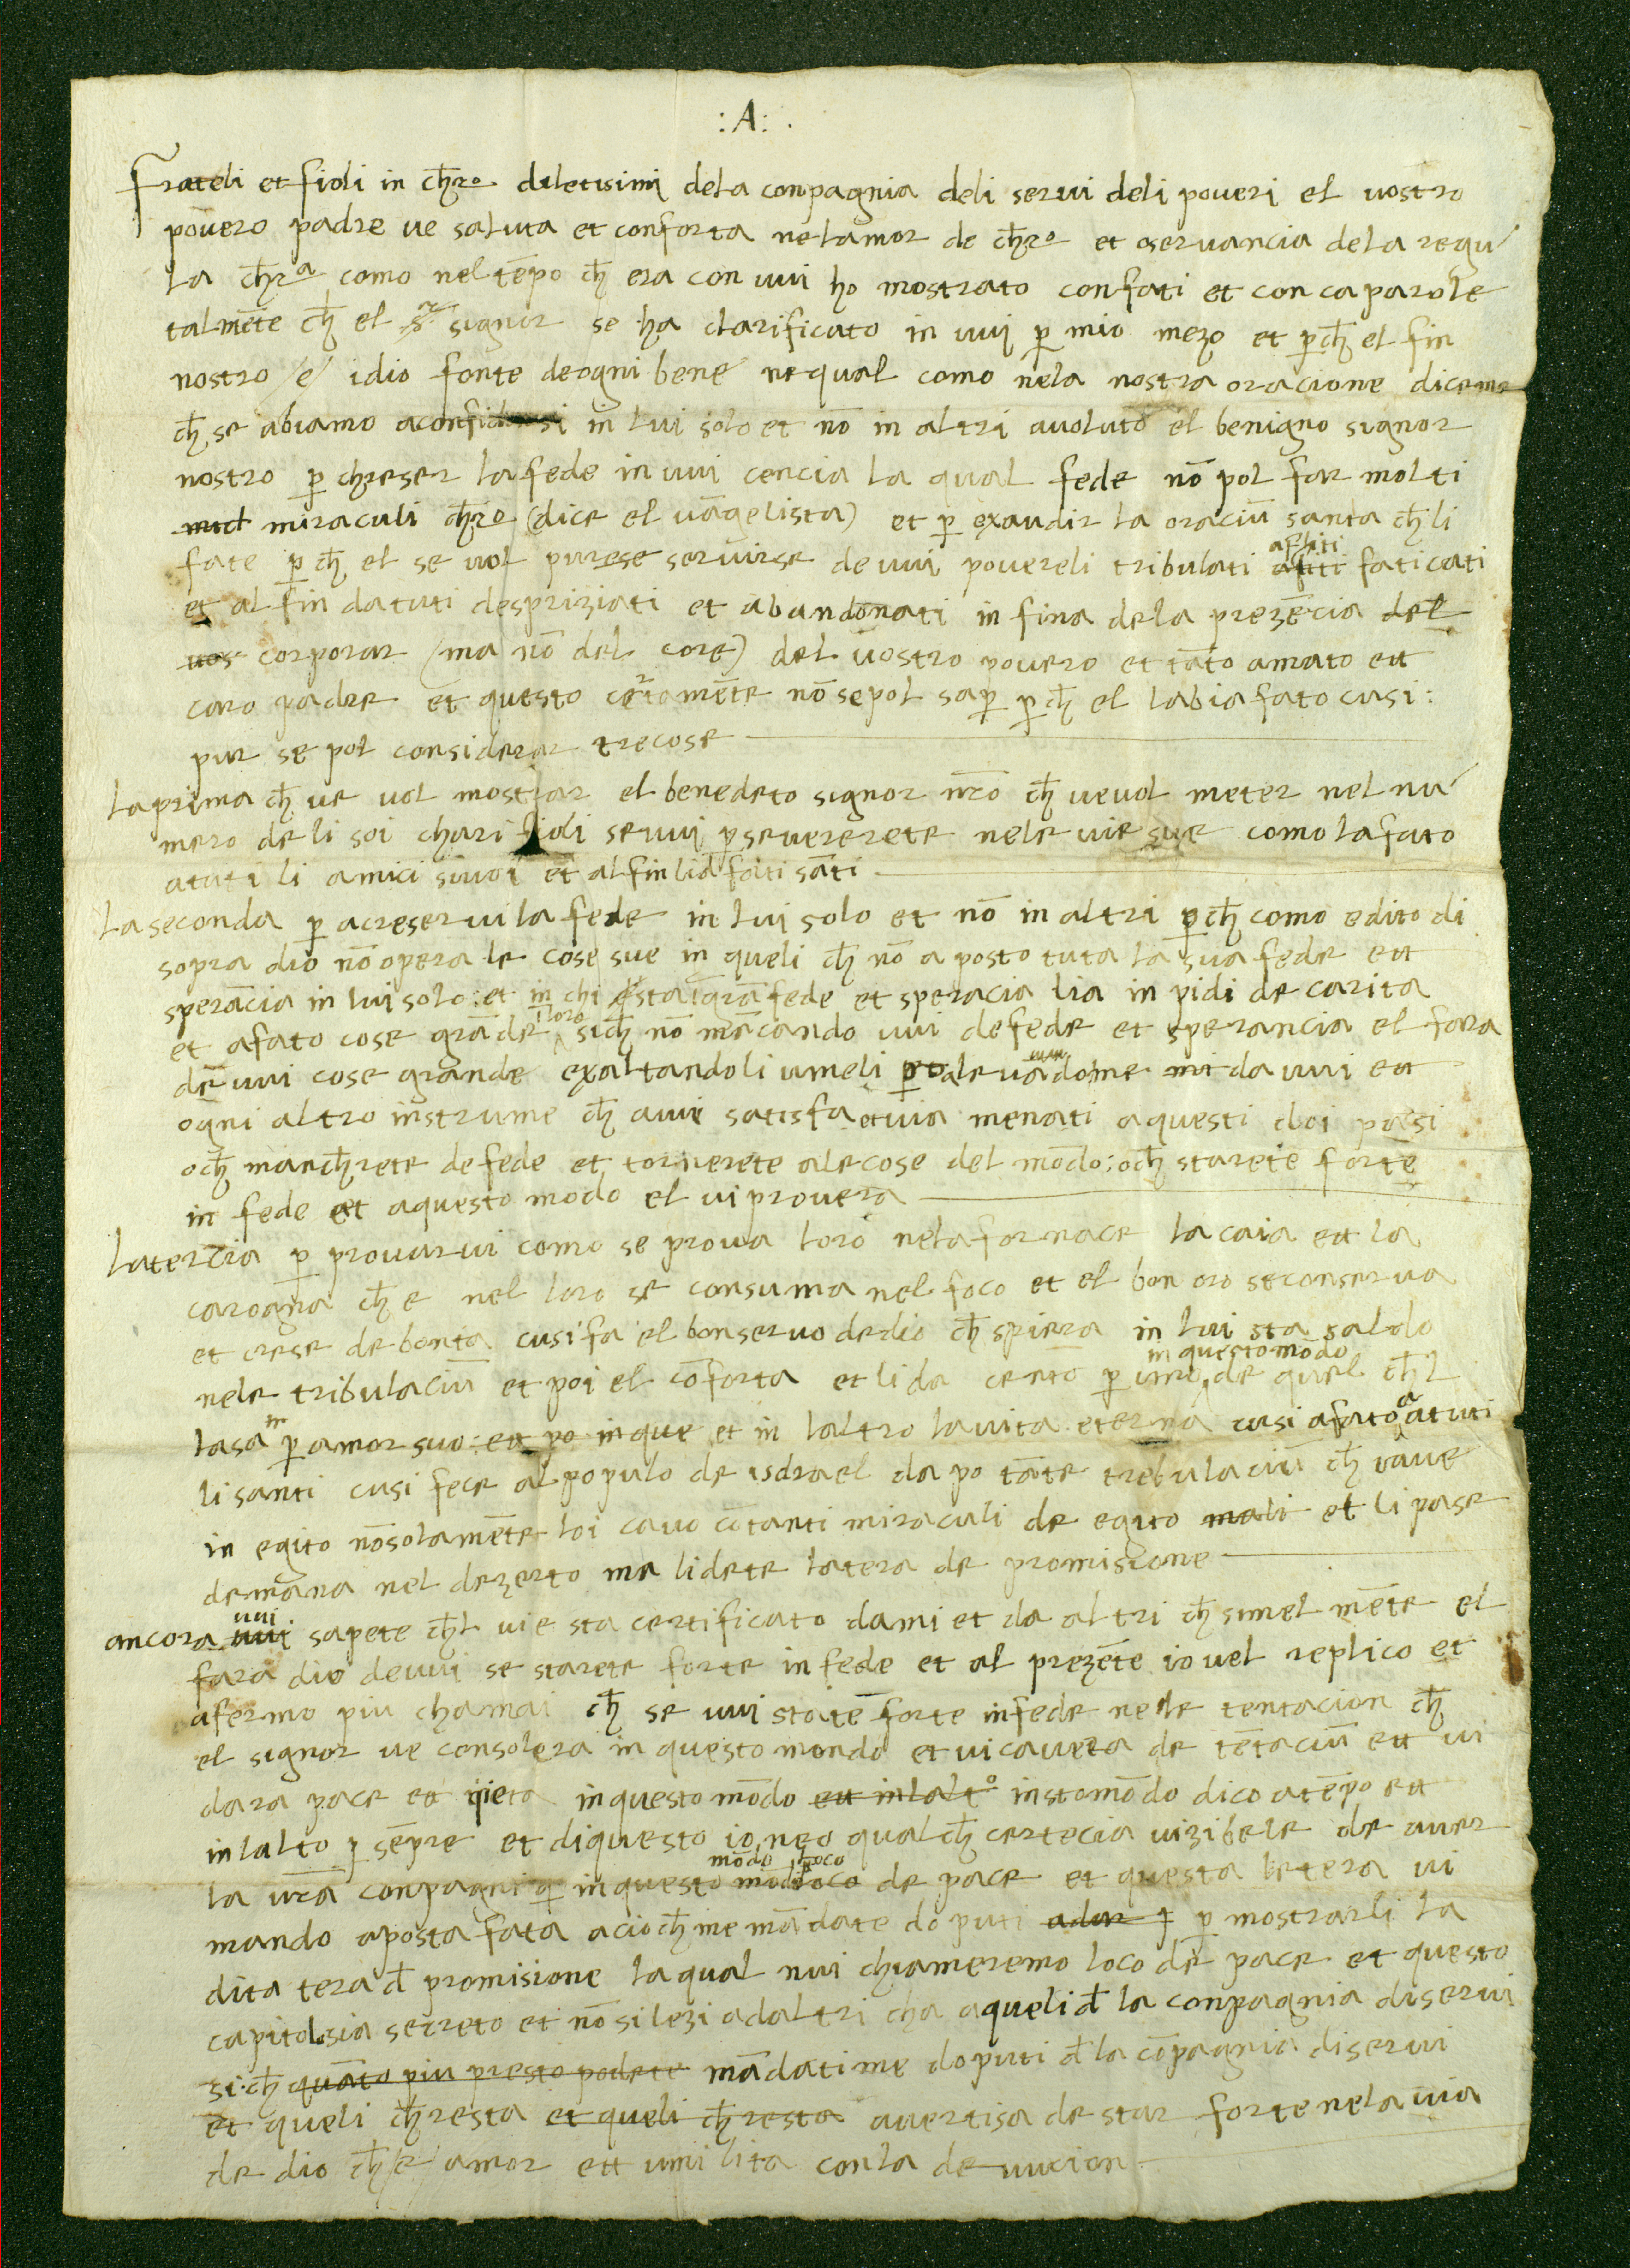 :A:.
frateli et fioli in chro diletisimi dela conpagnia deli servi deli poveri el vostro
povero padre ve saluta et conforta nelamor de chro et oservancia dela regu
la chra como nel tēpo ch era con vui ho mostrato confati et con ca parole
talmēte ch el sr signor se ha clarificato in vui p mio mezo et pch el fin
nostro /e/ idio fonte deogni bene nequal como nela nostra oracione dicemo
ch se abiamo aconfidarsi in lui solo et nō in altri avoluto el benigno signor
nostro p chreser lafede in vui cencia la qual fede nō pol far molti
mid miraculi chro (dice el vāgelista) et p exaudir la oraciū santa ch li
fate pch el se vol purese servirse de vui povereli tribulati afliti afliti faticati
et al fin datuti despriziati et abandonati in fina dela prezēcia del
vos corporar (ma nō del core) del vostro povero et tāto amato ett
caro padre et questo certamēte nōsepol sap pch el labia fato cusi:
pur se pol considerar trecose
laprima ch ve vol mostrar el benedeto signor nr̄o ch vevol meter nel nu
mero de li soi chari fioli sevui pseverete nele vie sue como lafato
atuti li amici suuoi et alfin lia fati sāti
laseconda p acreservi la fede in lui solo et nō in altri pch como edito di
sopra dio nō opera le cose sue in queli ch nō a posto tuta la sua fede ett
sperācia in lui solo: et in chi esta grā fede et speracia lia inpidi de carita
et afato cose grāde iloro sich nō mācando vui defede et sperancia el fara
de vui cose grande exaltandoli umeli levādome mi da vui ett
ogni altro instrume ch avui satisfa etvia menati aquesti doi pasi
och mancherete defede et tornerete alecose del mōdo: och starete forte
in fede et aquesto modo el vi provera
latercia p provarvi como se prova loro nelafornace lacaia ett la
carogna ch e nel loro se consuma nel foco et el bon oro seconserva
et crese debonta cusi fa el bonservo dedio ch spiera in lui sta saldo
nele tribulaciū et poi el cōforta et li da cento p uno in questo mōdo de quel chl
lasa in p amor suo: ett po inque et in laltro lavita eterna cusi afato a atuti
li santi cusi fece al populo de isdrael dapo tāte trebulaciū ch vave
in egito nōsolamēte loi cavo cō tanti miraculi de egito mali et li pase
demana nel dezerto ma lidete latera de promisione
ancora vui avui sapete chl vie sta certificato dami et da altri ch simelmēte el
fara dio devui se starete forte in fede et al prezēte io vel replico et
afermo piu chamai ch se vui state forte infede nele tentacion ch
el signor ve consolera in questo mondo et vi cavera de tētaciū ett vi
dara pace ett qieta inquesto mōdo ett inlalto instomōdo dico atēpo ett
inlalto p sēpre et diquesto io neo qualch certecia vizibele de aver
la vrā conpagni p inquesto mōdo loco modo loco de pace et questa letera vi
mando aposta fata acioch me mādate doputi adar p p mostrarli la
dita tera d promisione laqual nui chiameremo loco de pace et questo
capitolsia secreto et nōsi lezi adaltri cha aqueli d la conpagnia diservi
sich quāto piu presto podete mādatime doputi d la cōpagnia diservi
et queli chresta et queli chresta avertisa de star forte nela via
de dio ch/e/ amor ett umilita conla devucion